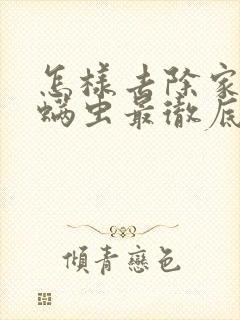 怎樣去除家
螨虫最徹底
傾青戀色